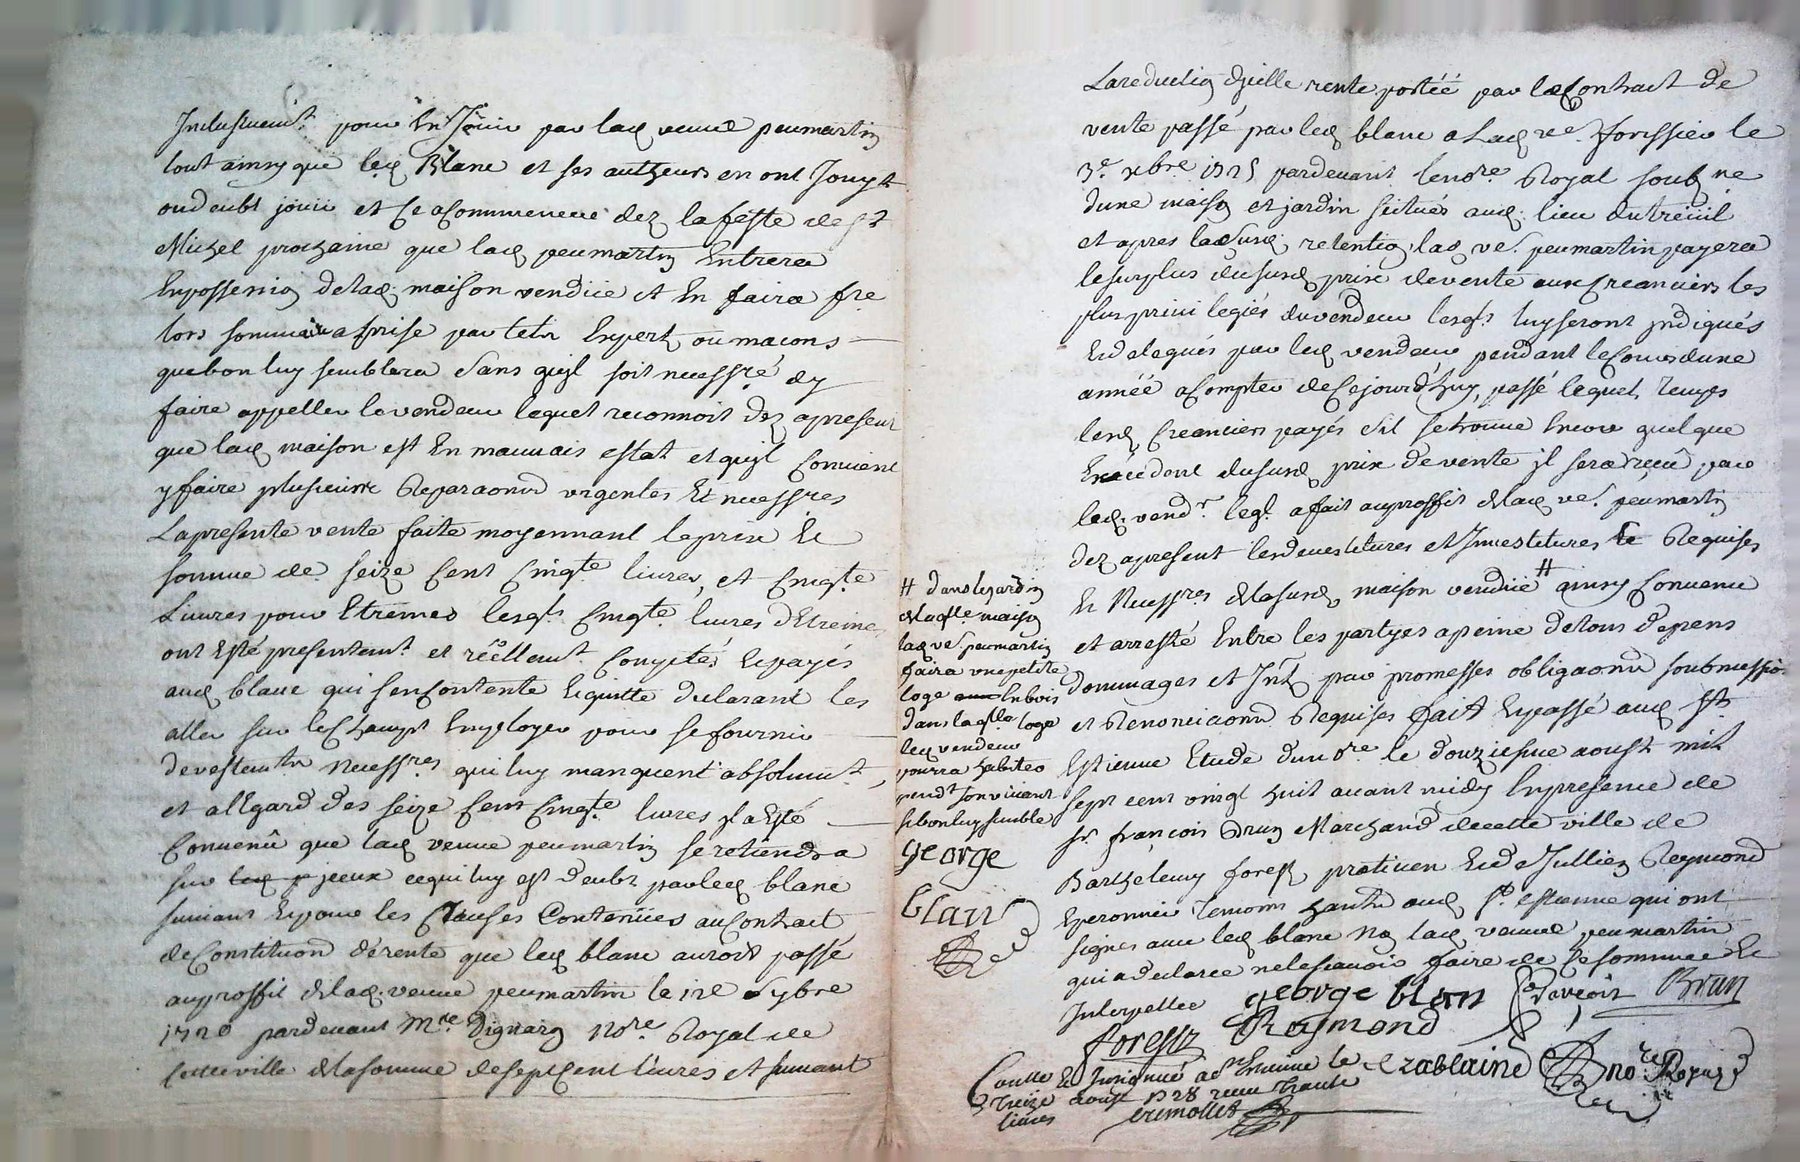 Inclusivemt. pour En Jouir par lad veuve peumartin
tout ainsy que led Blanc et ses autheurs en ont Jouyt
ou deubt jouir et Ce a Commencer dez la feste de st
Michel prochaine que lad peumartin Entrera
En possession de lad. maison vendüe et En faira fre
lors sommaire aprise par tels Expert ou macons
que bon luy semblera Sans quil soit necessre dy
faire appeller le vendeur lequel reconnoit dez apresent
que lad maison est En mauvais estat et quil Convient
y faire plusieurs Reparaons urgentes Et necessres
La presente vente faite moyennant le prix Et
somme de seize Cent Cinqte. livres, et Cinqte
Livres pour Etrennes lesqls Cinqte. livres d'Etrennes
ont Esté presentemt. et réellemt. Comptés Et payés
aud blanc qui sen Contente Et quitte declarant les
aller sur le Champt Employer pour se fournir
de vestemts necessres qui luy manquent absolumt,
et a l'Egard des seize Cent Cinqte. livres il a Esté
Convenû que lad veuve peumartin se retiendra
sur jceux ce qui luy est deubt par led blanc
suivant Et pour les Clauses Contenües au Contract
de Constitution de rente que led blanc auroit passé
au proffit de lad. veuve peumartin le 12e 7bre
1720 pardevant Mre Dignaig Nore. Royal de
cette ville de la somme de sept Cent livres et suivant
La reduction d'jcelle rente portée par le Contract de
vente passé par led blanc a Lad ve. forissier le
3e. xbre 1725 pardevant le nore. Royal soubzne
dune maison et jardin scitués aud. lieu du treuil
et apres lad susd. retention, lad ve. peumartin payera
le surplus du susd prix de vente aux Creanciers les
plus privilegiés du vendeur lesqls luy seront jndiqués
Et delegués par led vendeur pendant le Cours dune
année a Compter de Ce jourd'huy, passé lequel temps
lesd Creanciers payés s'il se trouve Encore quelque
Excedent du susd prix de vente jl sera reçeû par
led. vendr. leql. a fait au proffit de lad ve. peumartin
dez apresent les devestitures et Jnvestitures Requises
Et Necessres de la susd. maison vendüe # ainsy Convenu
et arresté Entre les partyes a peine de tous depens
dommages et Jnts par promesses obligaons soubmissions
et Renonciaons Requises fait Et passé aud St
Estienne Etude du nore. le douziesme aoust mil
sept cent vingt huit avant midy En presence de
sr. françois Brun Marchand de cette ville de
Barthelemy forest praticien Et de Jullien Reymond
Eperonnier temoins habts. aud St. estienne qui ont
signés avec led blanc Non lad veuve peumartin
qui a declarée ne le scavoir faire de Ce sommée Et
Interpellée
# dans le jardin
de laqlle maison
lad ve. peumartin
faira une petite
loge En bois
dans laqlle loge
led vendeur
pourra habiter
pendt son vivant
si bon luy semble
George
blanc
george blan francois Brun
forest Reymond
Crablaine nore Royal
Controllé Et Insinué a St Etienne le
treize aoust 1728 receu trante
livres
Grimollet